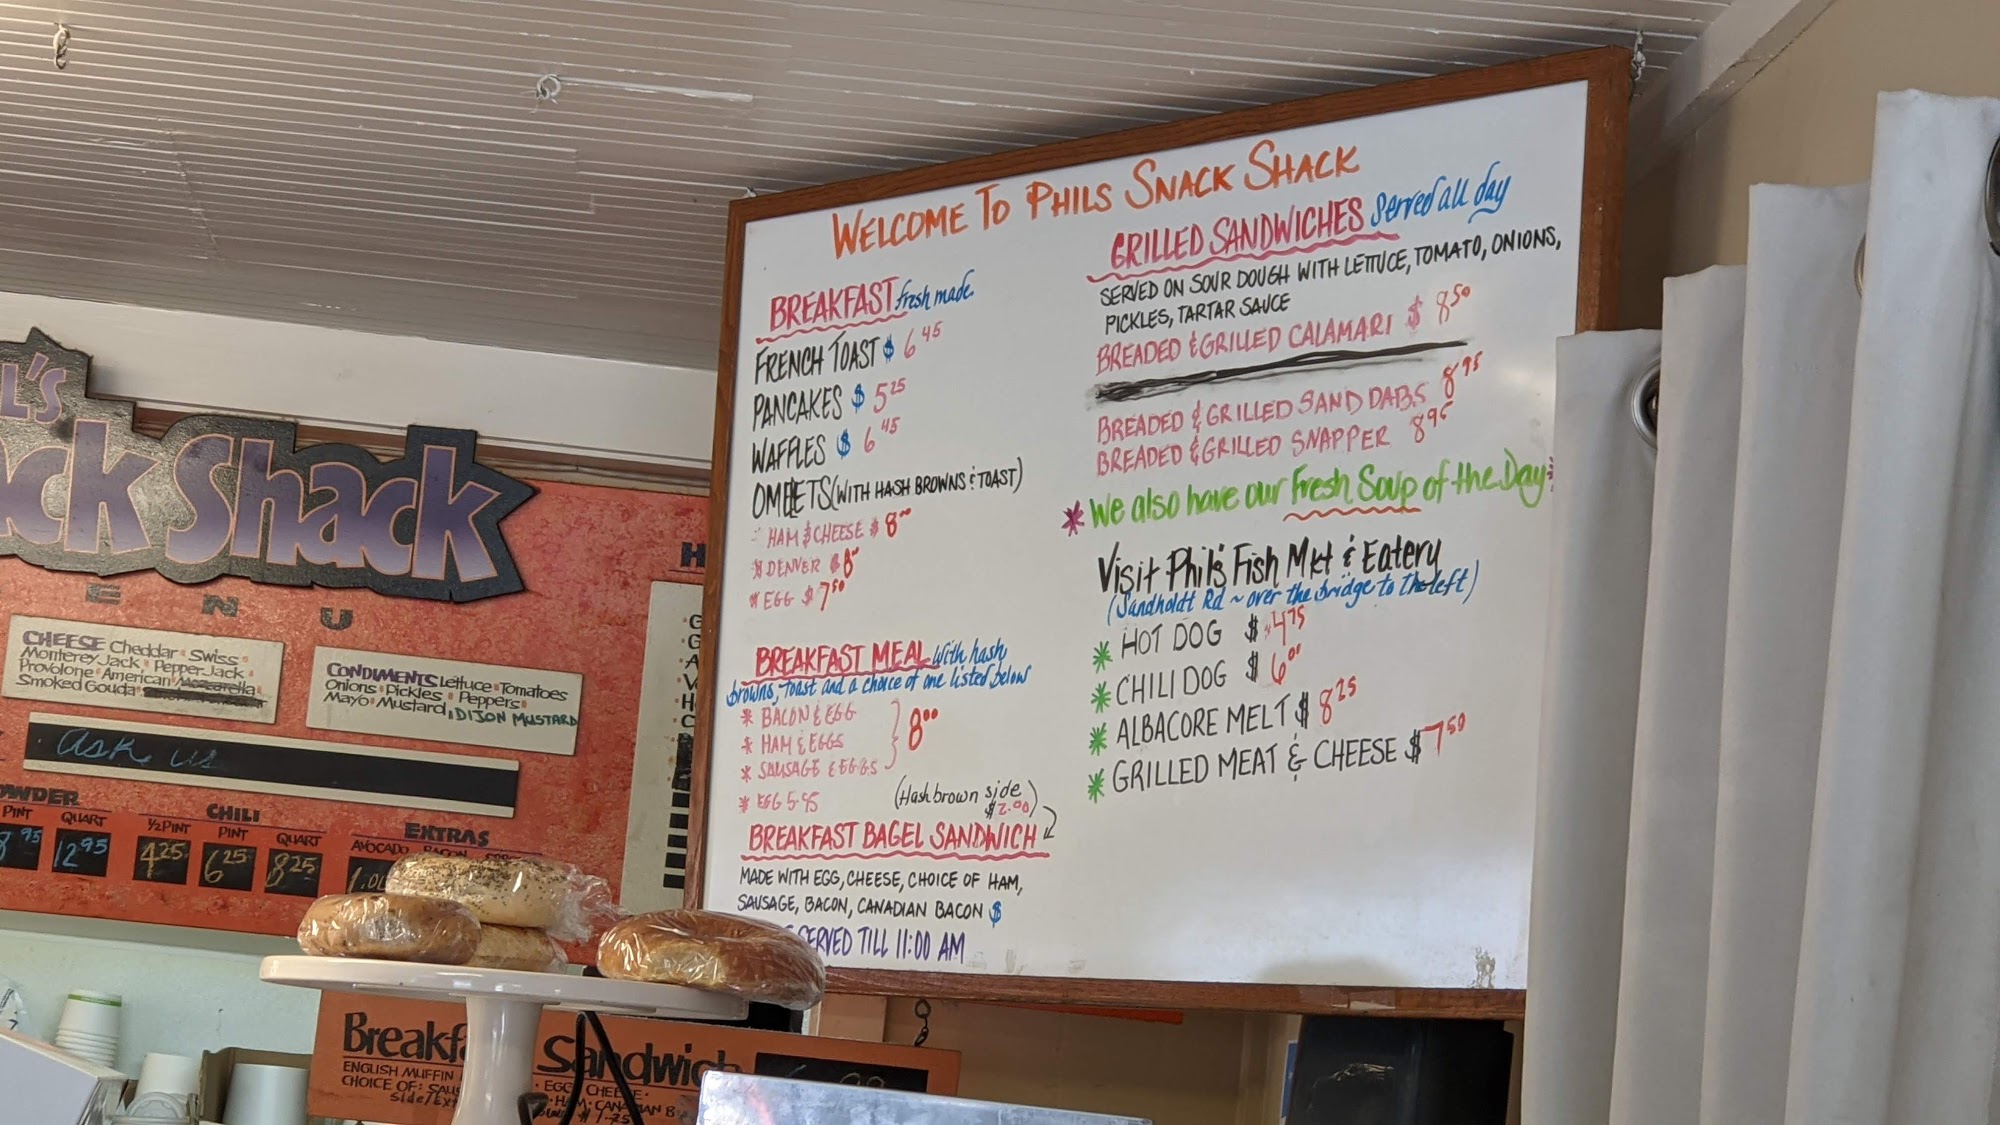 WELCOME TO PHILS SNACK SHACK
BREAKFAST fresh made
FRENCH TOAST $ 6 45
PANCAKES $ 5 25
WAFFLES $ 6 45
OMELETS (WITH HASH BROWNS & TOAST)
HAM & CHEESE $ 8 00
* DENVER $ 8 00
* EGG $ 7 50
BREAKFAST MEAL with hash
browns, toast and a choice of one listed below
* BACON & EGG
* HAM & EGGS
* SAUSAGE & EGGS
8 00
* EGG 5.95
(Hashbrown side
$2.00)
BREAKFAST BAGEL SANDWICH
MADE WITH EGG, CHEESE, CHOICE OF HAM,
SAUSAGE, BACON, CANADIAN BACON $
SERVED TILL 11:00 AM
GRILLED SANDWICHES Served all day
SERVED ON SOUR DOUGH WITH LETTUCE, TOMATO, ONIONS,
PICKLES, TARTAR SAUCE
BREADED & GRILLED CALAMARI $ 8 50
BREADED & GRILLED SAND DABS 8 95
BREADED & GRILLED SNAPPER 8 95
* We also have our Fresh Soup of the Day
Visit Phil's Fish Mkt & Eatery
(Sandholdt Rd ~ over the bridge to the left)
* HOT DOG $ 4 75
* CHILI DOG $ 6 00
* ALBACORE MELT $ 8 25
* GRILLED MEAT & CHEESE $ 7 50
L'S
ck Shack
E N U
CHEESE Cheddar Swiss
Monterey Jack Pepper Jack
Provolone American Mozzarella
Smoked Gouda
CONDIMENTS Lettuce Tomatoes
Onions Pickles Peppers
Mayo Mustard, DIJON MUSTARD
ask us
OWDER
PINT QUART
8 95 12 95
CHILI
1/2 PINT PINT QUART
4 25 6 25 8 25
EXTRAS
AVOCADO BACON
Breakf Sandwich
ENGLISH MUFFIN
EGG CHEESE
CHOICE OF: SAUS
HAM CANADIAN B